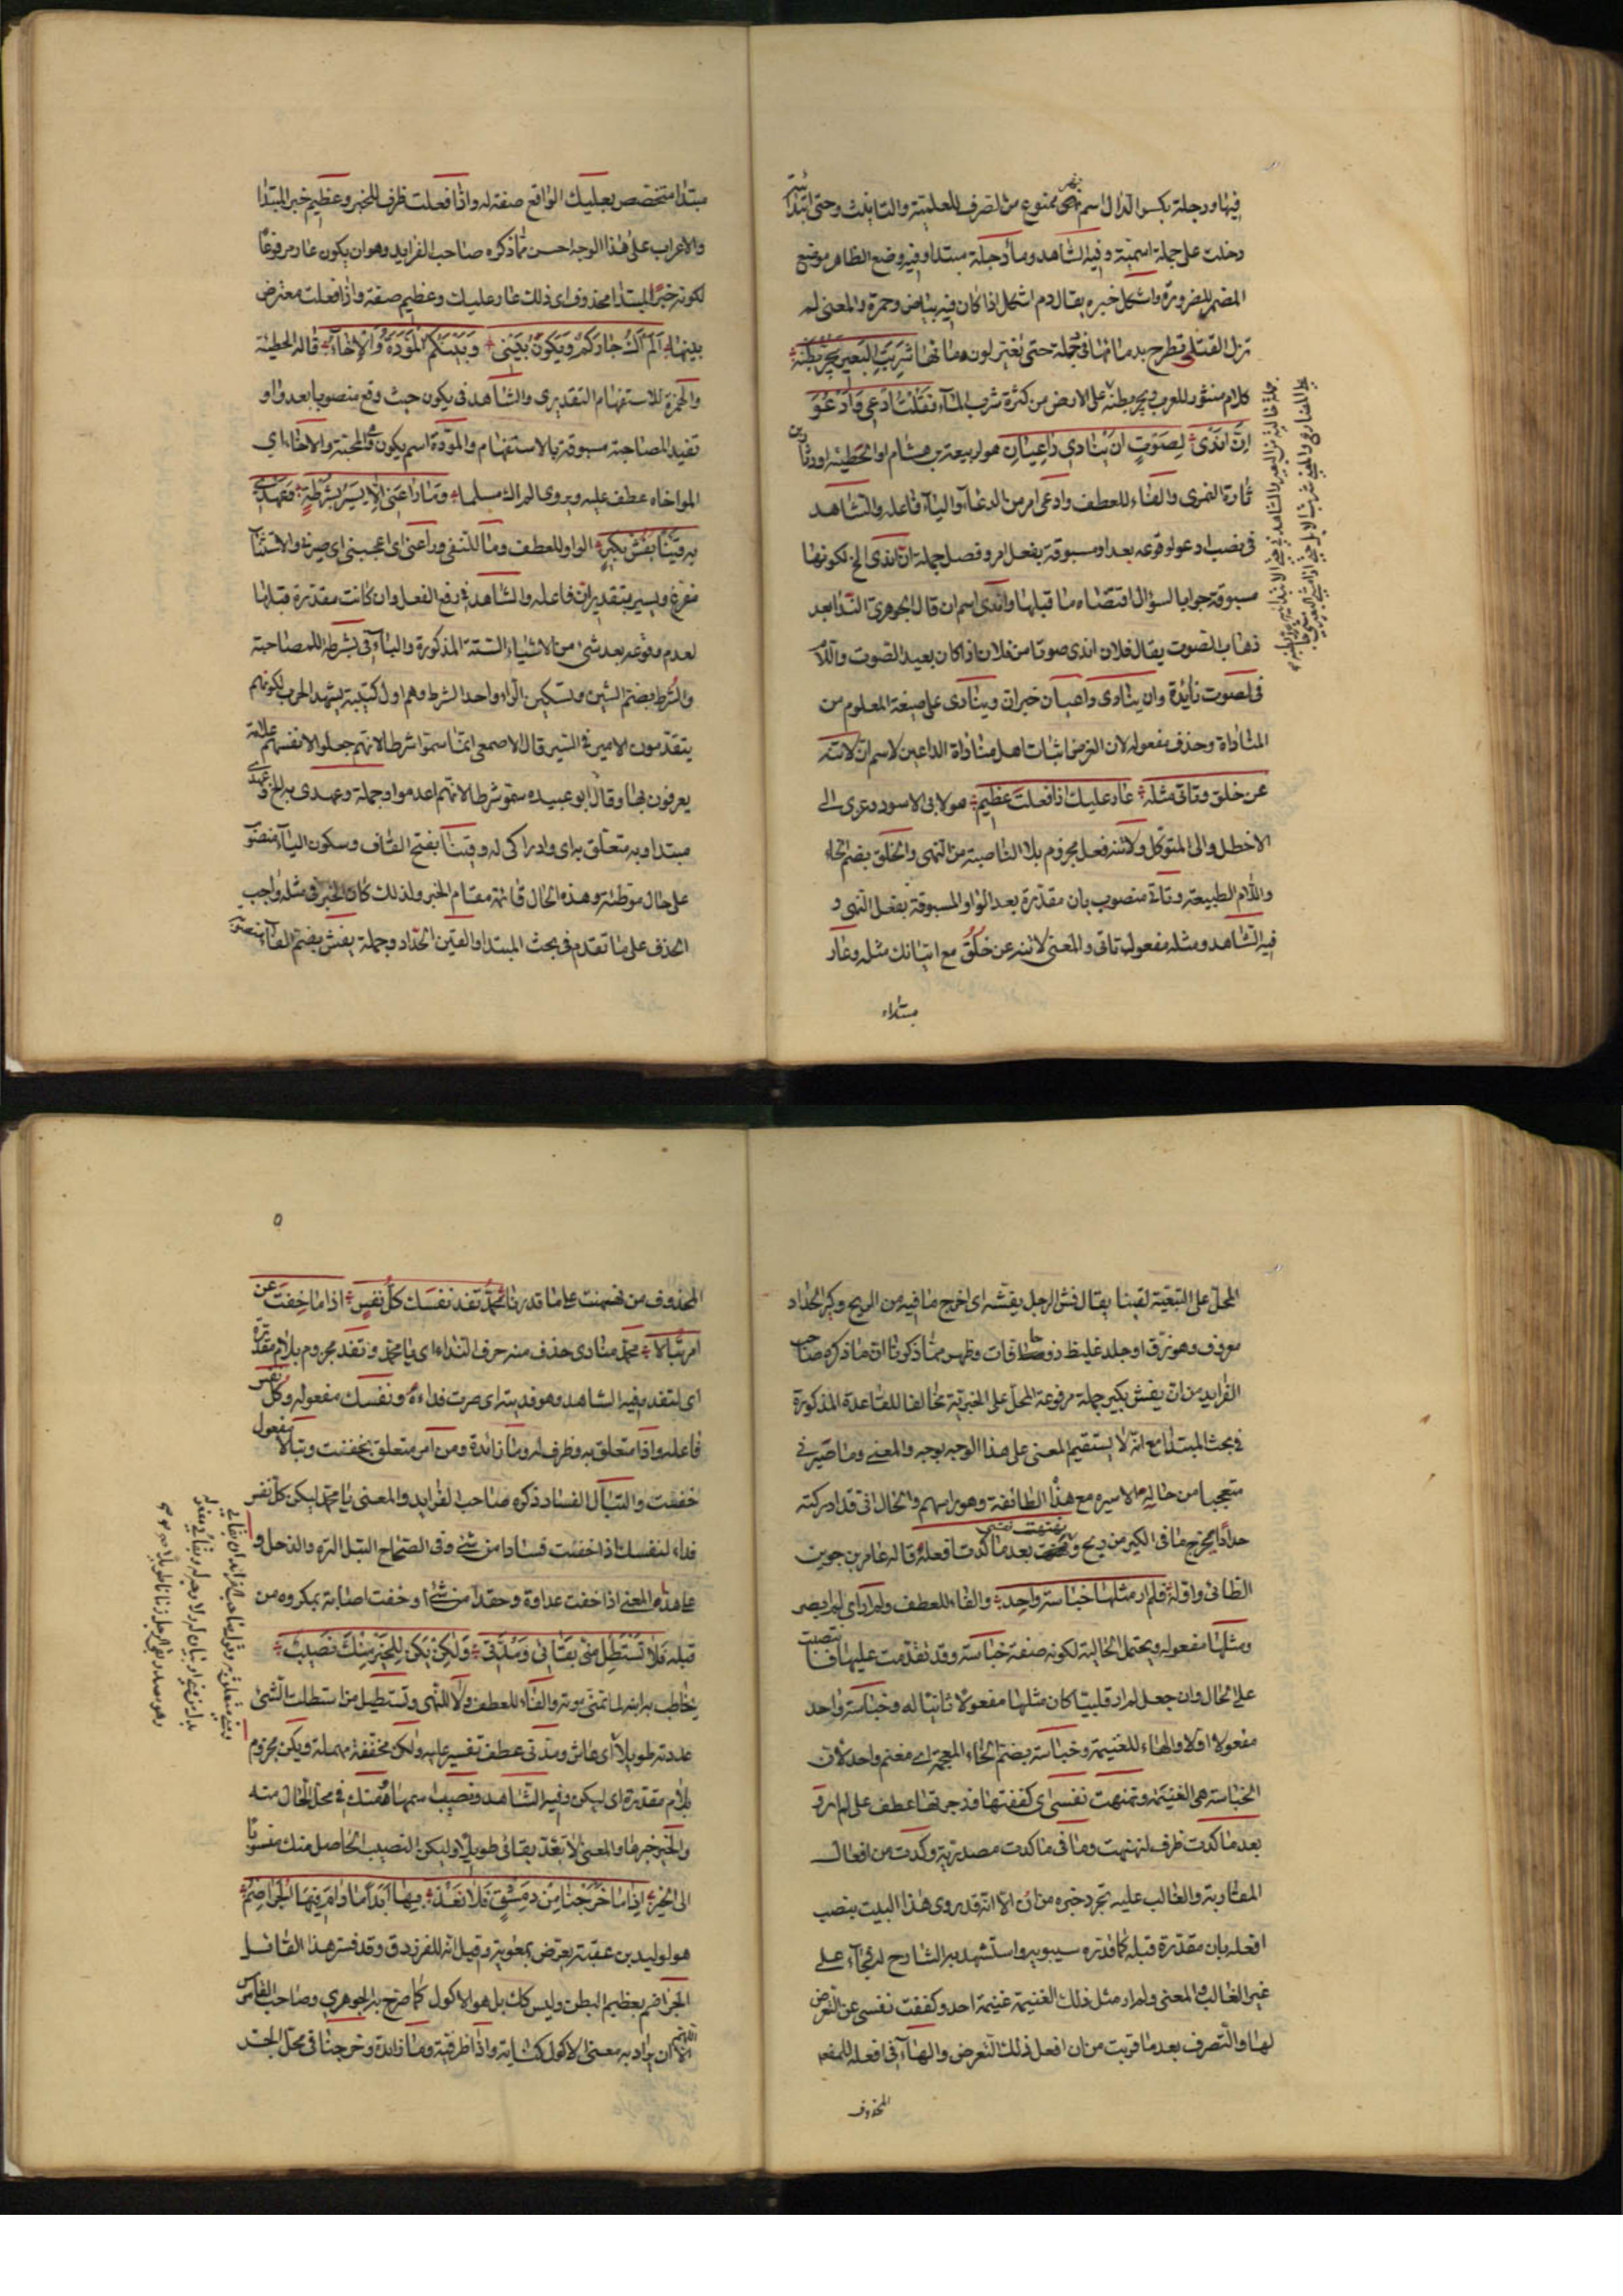 فيها ودجلة بكسر الدال اسم نهر ممنوع من الصرف للعلمية والتانيث وحتى ابتدائية
دخلت على جملة اسمية وفيه الشاهد وماء دجلة مبتدا وفيه وضع الظاهر موضع
المضمر للضرورة واشكل خبره يقال دم اشكل اذا كان فيه بياض وحمرة والمعنى لم
تزل القتلى تطرح بدمائها في دجلة حتى يغير لون مائها شربت البعير يجر بطنه
كلام منثور للعرب ويجر بطنه على الارض من كثرة شرب الماء فقلت ادعي وادعو
ان اندى لصوت ان ينادي داعيان هو لربيعة بن هشام او الحطيئة او دثار بن
ثارة النمري والفاء للعطف وادعي امر من الدعاء والياء فاعله والشاهد
في نصب ادعو لوقوعه بعد او مسبوقة بفعل امر وفصل جملة ان اندى الخ لكونها
مسبوقة جوابا لسؤال اقتضاه ما قبلها واندى اسم ان قال الجوهري الندا بعد
ذهاب الصوت يقال فلان اندى صوتا من فلان اذا كان بعيد الصوت واللام
في لصوت زائدة وان ينادي داعيان خبر ان وينادى على صيغة المعلوم من
المناداة وحذف مفعوله لان الغرض اثبات اصل مناداة الداعين لاسم ان لا تنه
عن خلق وتاتي مثله عار عليك اذا فعلت عظيم هو لابي الاسود وعزي الى
الاخطل والى المتوكل ولا تنه فعل مجزوم بلا الناصبة من النهي والخلق بضم الخاء
واللام الطبيعة وتاتي منصوب بان مقدرة بعد الواو المسبوقة بفعل النهي و
فيه الشاهد ومثله مفعول تاتي والمعنى لا تنه عن خلق مع اتيانك مثله وعار
مبتداء
مبتدا متخصص بعليك الواقع صفة له واذا فعلت ظرف للخبر وعظيم خبر المبتدا
والاعراب على هذا الوجه احسن مما ذكره صاحب الفرايد وهو ان يكون عار مرفوعا
لكونه خبر المبتدا محذوف اي ذلك عار عليك وعظيم صفة واذا فعلت معترض
بينهما الم اك جاركم ويكون بيني وبينكم المودة والاخاء قاله الحطيئة
والهمزة للاستفهام التقديري والشاهد في يكون حيث وقع منصوبا بعد واو
تفيد المصاحبة مسبوقة بالاستفهام والمودة اسم يكون وهي المحبة والاخاء اي
المواخاه عطف عليه ويروى الم اك مسلما وما راعني الا يسير بشرطة وعهدي
به قينا يفش بكير الواو للعطف وما للنفي وراعني اي اعجبني اي صيرته والاستثناء
مفرغ ويسير بتقدير ان فاعله والشاهد في رفع الفعل وان كانت مقدرة قبلها
لعدم وقوعه بعد شئ من الاشياء الستة المذكورة والباء في بشرطة للمصاحبة
والشرط بضم الشين وتسكين الراء واحد الشرط وهم اول كتيبة يشهد الحرب لكونهم
يتقدمون الامير في السير قال الاصمعي انما سموا شرطا لانهم جعلوا لانفسهم علامة
يعرفون بها وقال ابو عبيده سموا شرطا لانهم اعدموا وجملة وعهدي به الخ وعهدي
مبتدا وبه متعلق براي وادراكي له وقينا بفتح القاف وسكون الياء منصوب
على حال موطئة وهذه الحال قائمة مقام الخبر ولذلك كان الخبر في مثله واجب
الحذف على ما تقدم في بحث المبتدا والقين الحداد وجملة يفش بضم الفاء منصوبة
المحل على التبعية لقينا يقال فش الرجل يفشه اي اخرج ما فيه من الريح وكير الحداد
معروف وهو زق او جلد غليظ ذو حافات وظهر مما ذكرنا ان ما ذكره صاحب
الفرايد من ان يفش بكير جملة مرفوعة المحل على الخبرية مخالفا للقاعدة المذكورة
في بحث المبتدا مع انه لا يستقيم المعنى على هذا الوجه بوجه والمعنى وما صيرني
متعجبا من حاله الا سيره مع هذا الطائفة وهو راسهم والحال اني قد ادركته
حدادا يخرج ما في الكير من ريح ونهنهت نفسي بعد ما كدت افعله قاله عامر بن جوين
الطائي واوله فلم ار مثلها خباسة واحد والفاء للعطف ولم ار اي لم ابصر
ومثلها مفعوله ويحتمل الحالية لكونه صفة خباسة وقد تقدمت عليها فانتصبت
على الحال وان جعل لم ار قلبيا كان مثلها مفعولا ثانيا له وخباسة واحد
مفعولا اولا والهاء للغنيمة وخباسة بضم الخاء المعجمة اي مغنم واحد لان
الخباسة هي الغنيمة ونهنهت نفسي اي كففتها وزجرتها عطف على لم ار و
بعد ما كدت ظرف لنهنهت وما في ما كدت مصدرية وكدت من افعال
المقاربة والغالب عليه تجرد خبره من ان الا انه قد روى هذا البيت بنصب
افعله بان مقدرة قبله كما قدره سيبويه واستشهد به الشارح لمجيئه على
غير الغالب والمعنى ولم ار مثل ذلك الغنيمة غنيمة احد وكففت نفسي عن التعرض
لها والتصرف بعد ما قربت من ان افعل ذلك التعرض والهاء في افعله للمصدر
المحذوف
المحذوف من نهنهت على ما قدرنا محمد تفد نفسك كل نفس اذا ما خفت من
امر تبالا محمد منادى حذف منه حرف النداء اي يا محمد وتفد مجزوم بلام مقدرة
اي لتفد وفيه الشاهد وهو فديته اي صرت فداءه ونفسك مفعوله وكل نفس
فاعله واذا متعلق به وظرف له وما زائدة ومن امر متعلق بخفت وتبالا مفعول
خفت والتبال الفساد ذكره صاحب الفرايد والمعنى يا محمد ليكن كل نفس
فداء لنفسك اذا خفت فسادا من شئ وفي الصحاح التبل الترة والذحل و
على هذا المعنى اذا خفت عداوة وحقدا من شئ او خفت اصابة بمكروه من
قبله فلا تستطل مني بقائي ومدتي ولكن يكن للخير منك نصيب
يخاطب به ابنه لما تمنى موته والفاء للعطف ولا للنهي وتستطيل من استطلت الشئ
عددته طويلا اي عاش ومدتي عطف تفسير عليه ولكن مخففة مهملة ويكن مجزوم
بلام مقدرة اي ليكن وفيه الشاهد ونصيب اسمها ومنك في محل الحال منه
والخبر خبرها والمعنى لا تعد بقائي طويلا وليكن النصيب الحاصل منك منسوبا
الى الخير اذا ما خرجنا من دمشق فلا نعد بها ابدا ما دام فيها الجراضم
هو لوليد بن عقبة يعرض بمعوية وقيل انه للفرزدق وقد فسر هذا القائل
الجراضم بعظيم البطن وليس كك بل هو الاكول كما صرح به الجوهري وصاحب القاموس
الا ان يراد به معنى الاكول كناية واذا ظرفية وما زائدة وخرجنا في محل الجر